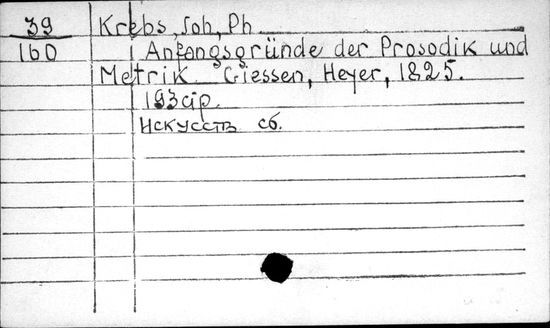 39 Krebs, Joh, Ph
160 Anfangsgründe der Prosodik und
Metrik Giessen, Heyer, 1825.
193 стр.
Искусств сб.